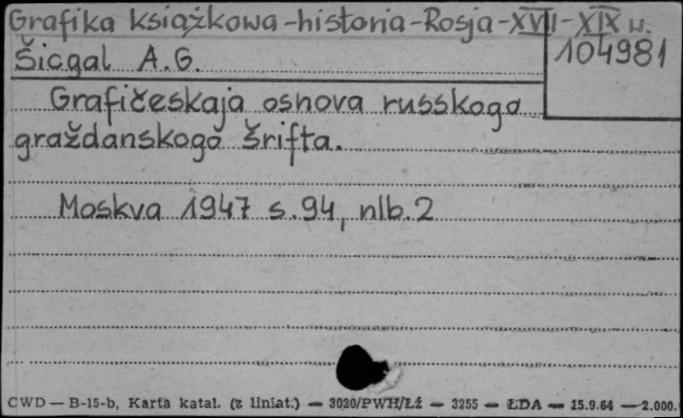 Grafika książkowa-historia-Rosja-XVII-XIX w.
104981
Šicgal A.G.
Grafičeskaja osnova russkogo
graždanskogo šrifta.
Moskva 1947 s.94, nlb.2
CWD — B-15-b, Karta katal. (z liniat.) — 3020/PWH/Łź — 3255 — ŁDA — 15.9.64 — 2.000.